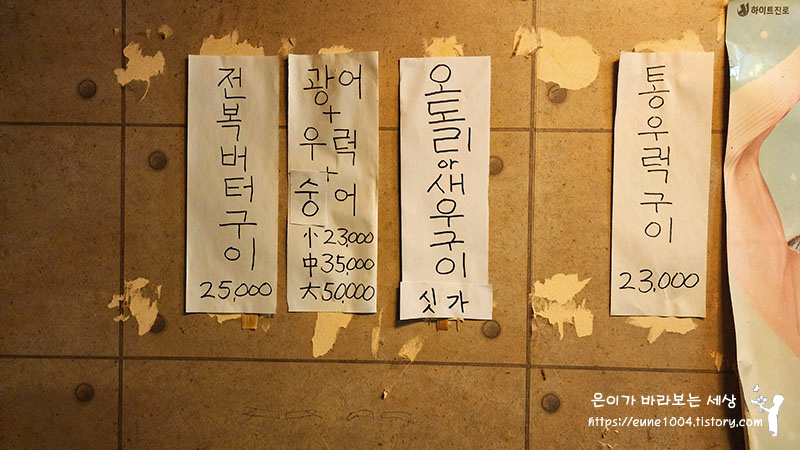 전복버터구이
25,000
광어
+
우럭
+
숭어
小 23,000
中 35,000
大 50,000
오토리아새우구이
싯가
통우럭구이
23,000
하이트진로
은이가 바라보는 세상
https://eune1004.tistory.com